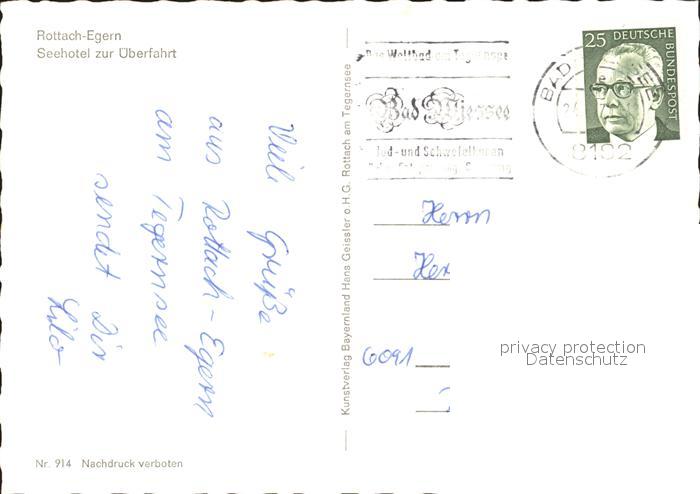 Rottach-Egern
Seehotel zur Überfahrt
Viele Grüße
aus Rottach-Egern
am Tegernsee
sendet Dir
Lilo
Nr. 914 Nachdruck verboten
Kunstverlag Bayernland Hans Geissler o.H.G. Rottach am Tegernsee
Das Weltbad am Tegernsee
Bad Wiessee
Jod- und Schwefelkuren
BAD
8182
25 DEUTSCHE
BUNDESPOST
Herrn
Her
6091
privacy protection
Datenschutz